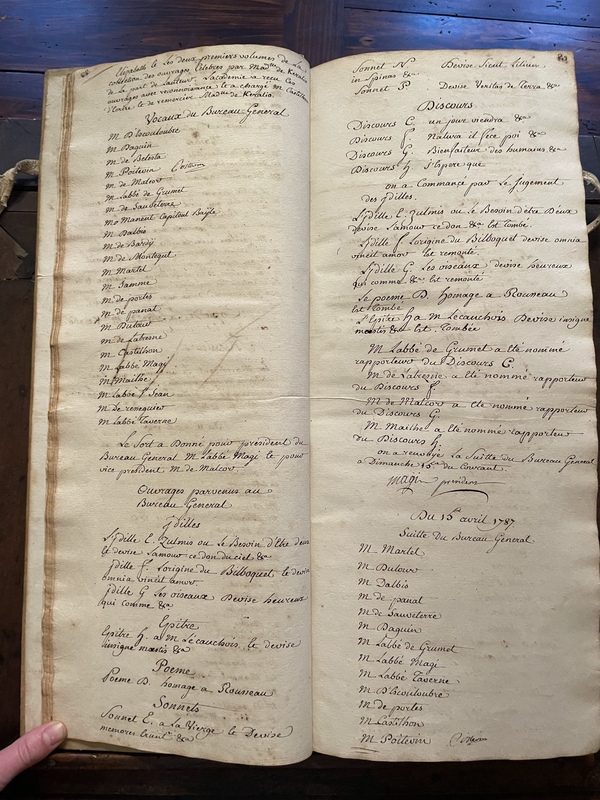 Elizabeth le les deux premiers volumes de la
collection des ouvrages célebres par Mad.me de Keralio
de la part de l'auteur. L'academie a recu ces
ouvrages avec reconnoissance le a chargé M Castilhon
d'Ecrire le de remercier Mad.me de Keralio.
Vocaux du Bureau General
M D'hououloubre
M Daguin
M de Belesta
M Poitevin
M de Malcor
M L'abbé de Grumet
M de Sauveterre
M Manent Capitoul Bayle
M Dalbis
M de Bardy
M de Montegut
M Martel
M Jamme
M de portes
M de panat
M Dutour
M de Latresne
M Castilhon
M L'abbé Magi
M Mailhe
M Labbé St Jean
M de reneguier
M Labbé Taverne
Le Sort a Donné pour président du
Bureau General M L'abbé Magi le pour
vice président M de Malcor.
Ouvrages parvenus au
Bureau General
ydilles
Sydille E. Zulmis ou le Besoin d'Etre deux
le devise L'amour ce don du ciel &a
ydille f. L'origine du Bilboquet le devise
omnia vincit amor.
ydille G Les oiseaux Devise heureux
qui comme &a
Epitre
Epitre h. a M Lécauchois le devise
insigne mæstis &a
Poeme
Poeme B. homage a Rousseau
Sonnets
Sonnet E. a La Vierge le Devise
memores &a
Sonnet N Devise Sicut Lilium
in Spinas &a
Sonnet P Devise Veritas de Terra &a
Discours
Discours C un jour viendra &a
Discours f. Natura il fece poi &a
Discours G Bienfaiteur des humains &a
Discours h J'espere que
on a Commancé par Le Jugement
des ydilles.
Sydille E Zulmis ou le Besoin d'être Deux
devise L'amour ce don &a Est tombé.
Sydille f. L'origine du Bilboquet devise omnia
vincit amor Est remonté.
Sydille G. Les oiseaux devise heureux
qui comme &a Est remonté
Le poeme B. homage a Rousseau
Est tombé
L'Epitre h a M Lecauchois Devise insigne
mæstis &a Est Tombée
M Labbé de Grumet a eté nommé
rapporteur du Discours C.
M de Latresne a eté nommé rapporteur
du Discours f.
M de Malcor a eté nommé rapporteur
du Discours G.
M Mailhe a eté nommé rapporteur
du Discours h.
on a renvoyé La Suitte du Bureau General
a Dimanche 15e du Courant.
magi president
Du 15e avril 1787.
Suitte Du Bureau General
M Martel
M Dutour
M Dalbis
M de panat
M de Sauveterre
M Daguin
M Labbé de Grumet
M Labbé Magi
M Labbé Taverne
M D'hououloubre
M de portes
M Castilhon
M Poitevin